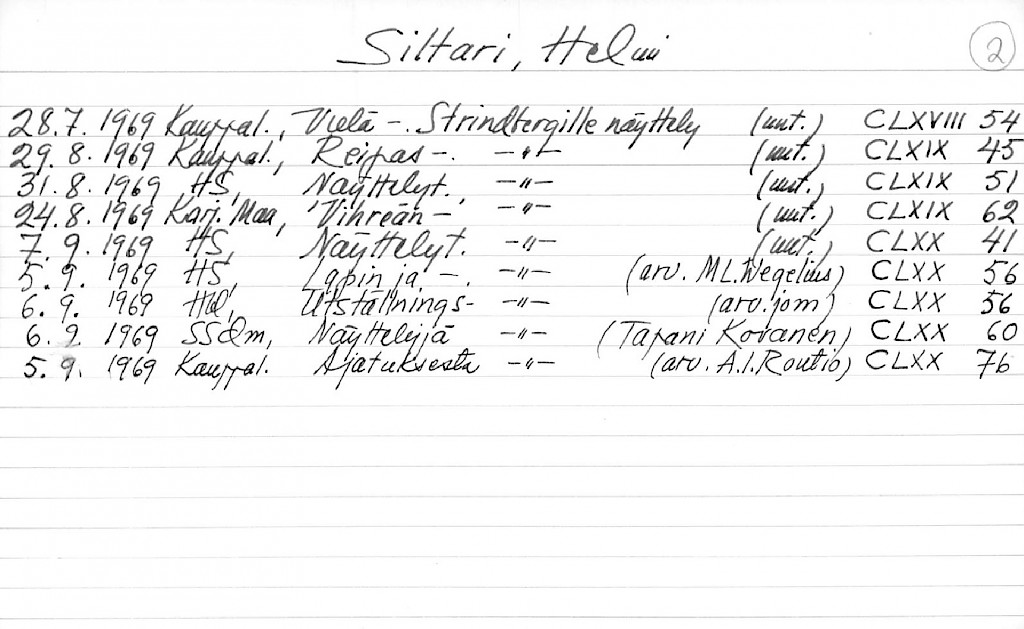 Siltari, Helmi
2
28.7. 1969 Kauppal., Vielä -. Strindbergille näyttely (uut.) CLXVIII 54
29.8. 1969 Kauppal., Reipas -. -"- (uut.) CLXIX 45
31.8. 1969 HS, Näyttelyt. -"- (uut.) CLXIX 51
24.8. 1969 Karj. Maa, Vihreän - -"- (uut.) CLXIX 62
7.9. 1969 HS, Näyttelyt. -"- (uut.) CLXX 41
5.9. 1969 HS, Lapin ja -. -"- (arv. M.L.Wegelius) CLXX 56
6.9. 1969 Hbl, Utställnings- -"- (arv. jom) CLXX 56
6.9. 1969 SSdm, Näyttelyjä -"- (Tapani Kovanen) CLXX 60
5.9. 1969 Kauppal. Ajatuksesta -"- (arv. A.I.Routio) CLXX 76